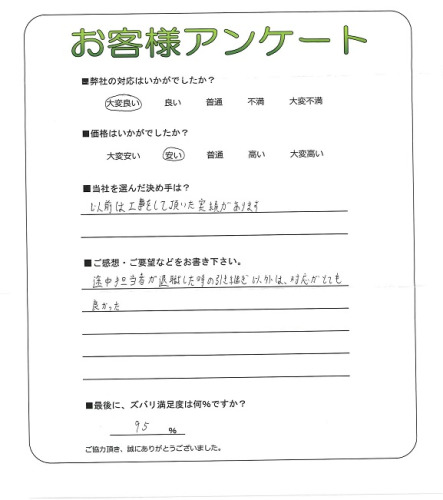 お客様アンケート
■弊社の対応はいかがでしたか？
大変良い 良い 普通 不満 大変不満
■価格はいかがでしたか？
大変安い 安い 普通 高い 大変高い
■当社を選んだ決め手は？
以前は工事をして頂いた実績があります
■ご感想・ご要望などをお書き下さい。
途中担当者が退職した時の引き継ぎ以外は、対応がとても
良かった
■最後に、ズバリ満足度は何％ですか？
95 ％
ご協力頂き、誠にありがとうございました。